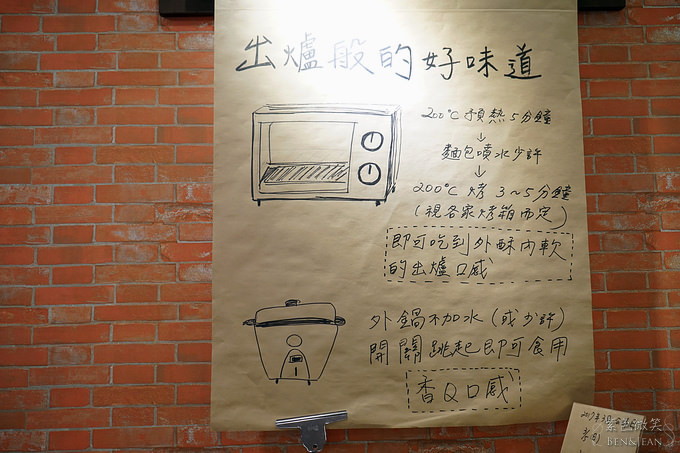 出爐般的好味道
200°C 預熱5分鐘
↓
麵包噴水少許
↓
200°C 烤 3~5分鐘
(視各家烤箱而定)
即可吃到外酥內軟
的出爐口感
外鍋不加水(或少許)
開關跳起即可食用
香Q口感
紫色微笑
BEN & JEAN